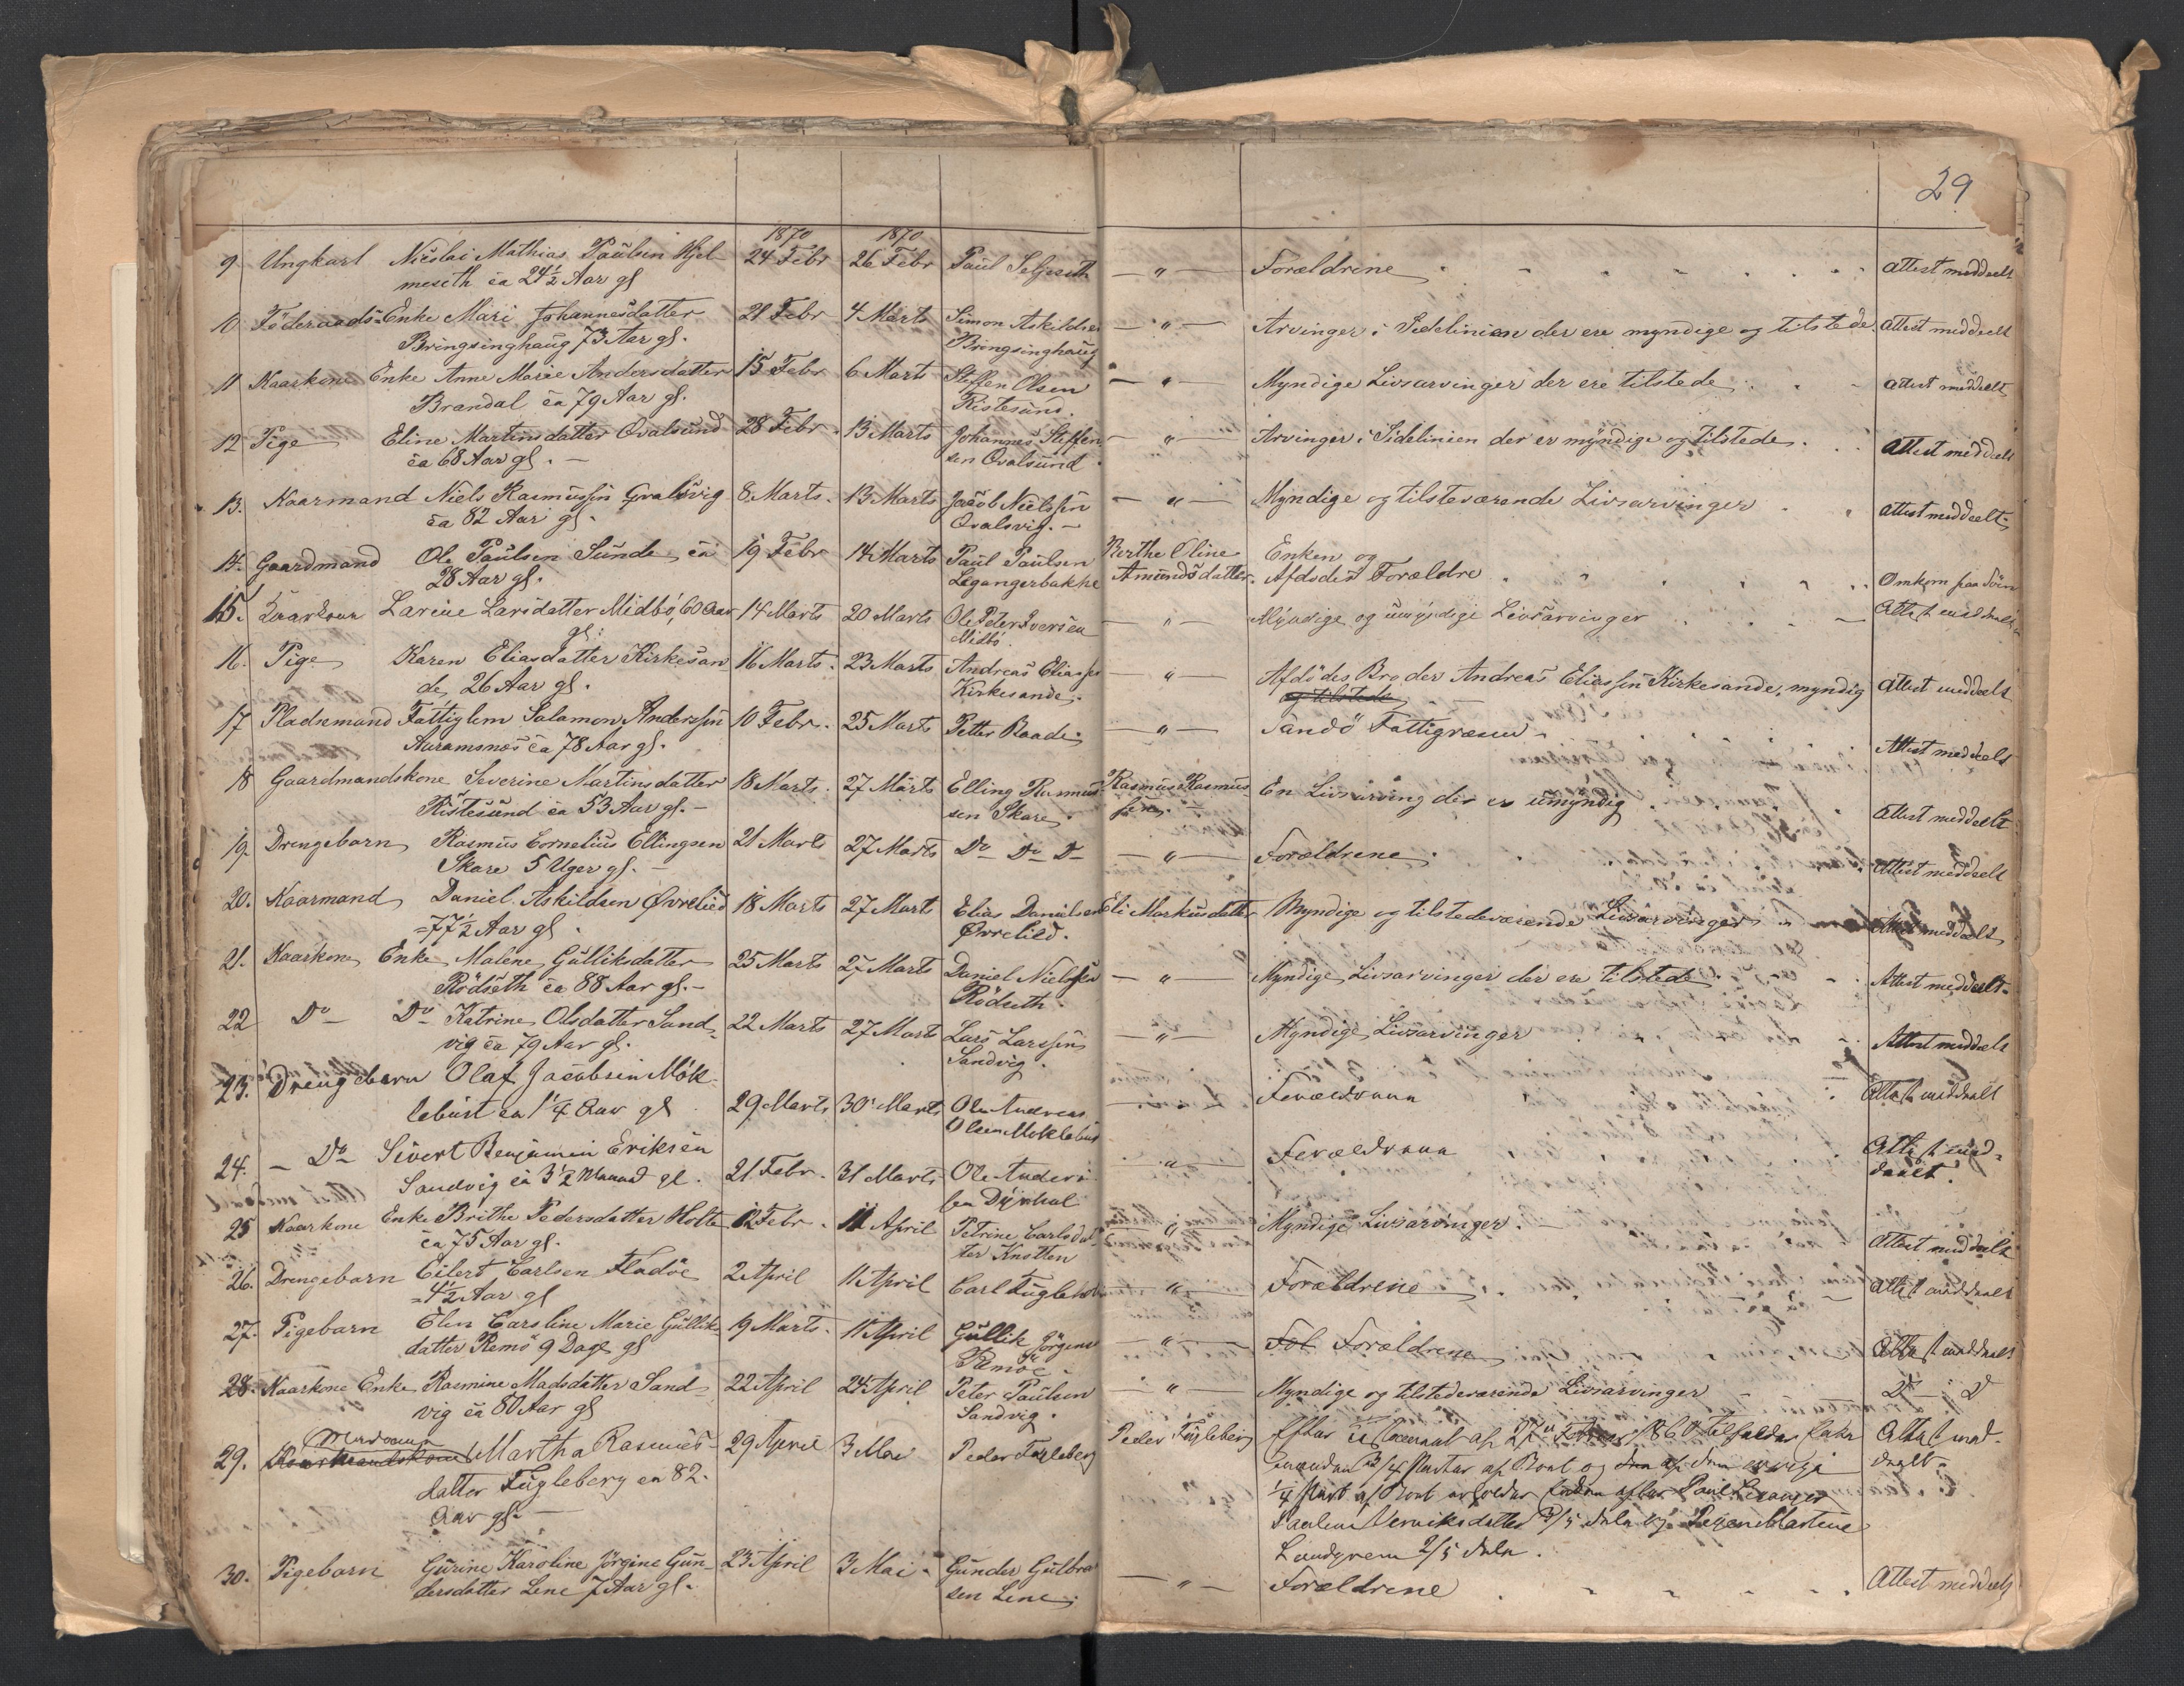 29
1870 1870
9 Ungkarl Nicolai Mathias Paulsen Hjel- 24 Febr 26 Febr Paul Seljeseth — " — Forældrene Attest meddeelt
meseth ca 24½ Aar gl
10. Föderaads-Enke Mari Johannesdatter 21 Febr 4 Marts Simon Askildsen — " — Arvinger i Sidelinien der ere myndige og tilstede Attest meddeelt
Bringsinghaug 73 Aar gl. Bringsinghaug
11 Kaarkone Enke Anne Marie Andersdatter 15 Febr 6 Marts Steffen Olsen — " — Myndige Livsarvinger der ere tilstede Attest meddeelt
Brandal ca 79 Aar gl. Ristesund.
12 Pige Eline Martinsdatter Qvalsund 28 Febr. 13 Marts Johannes Steffen — " — Arvinger i Sidelinien der er myndige og tilstede. Attest meddeelt
ca 68 Aar gl. — sen Qvalsund.
13. Kaarmand Niels Rasmussen Qvalsvig 8 Marts. 13 Marts Jacob Nielssen — " — Myndige og tilsteværende Livsarvinger Attest meddeelt.
ca 82 Aar gl. Qvalsvig. —
14. Gaardmand Ole Paulsen Sunde ca 19 Febr 14 Marts Paul Paulsen Berthe Oline Enken og
28 Aar gl. Legangerbakke Amundsdatter. Afdødes Forældre Omkom paa Søen
15. Kaarkone Larine Larsdatter Midbö, 60 Aar 14 Marts 20 Marts Ole Peter Iversen — " — Myndige og umyndige Livsarvinger Attest meddeelt
gl. Midbö.
16. Pige Karen Eliasdatter Kirkesan- 16 Marts. 23 Marts Andreas Eliassen — " — Afdödes Broder Andreas Eliassen Kirkesande, myndig Attest meddeelt
de, 26 Aar gl. Kirkesande. og tilstede
17 Pladsemand Fattiglem Salamon Anderssen 10 Febr. 25 Marts Petter Raade — " — Sandö Fattigvæsen Attest meddeelt
Aaramsnæs ca 78 Aar gl.
18 Gaardmandskone Severine Martinsdatter 18 Marts. 27 Marts Elling Rasmus Rasmus Rasmus- En Livsarving der er umyndig Attest meddeelt
Ristesund ca 53 Aar gl. — sen Skare. sen.
19. Drengebarn Rasmus Cornelius Ellingsen 21 Marts 27 Marts Do Do Do — " — Forældrene. Attest meddeelt
Skare 5 Uger gl. —
20. Kaarmand Daniel Askildsen Øvrelied 18 Marts 27 Marts Elias Danielsen Eli Markusdatter Myndige og tilstedeværende Livsarvinger Attest meddeelt
=77½ Aar gl. Øvrelied.
21. Kaarkone Enke Malene Gulliksdatter 25 Marts 27 Marts Daniel Nielssen — " — Myndige Livsarvinger der ere tilstede Attest meddeelt.
Rödseth ca 88 Aar gl. — Rödseth.
22 Do — Do Katrine Olsdatter Sand- 22 Marts 27 Marts Lars Larssen — " — Myndige Livsarvinger Attest meddeelt
vig ca 79 Aar gl. Sandvig.
23. Drengebarn Olaf Jacobsen Mök- Forældrene Attest meddeelt
lebust ca 1¼ Aar gl 29 Marts 30 Marts Ole Andreas
Olsen Moklebust
24. — Do — Sivert Benjamin Eriksen Forældrene Attest med-
Sandvig ca 3½ Maaned gl. 21 Febr. 31 Marts Ole Anders- — " — deelt.
sen Dyrhol
25 Kaarkone Enke Brithe Pedersdatter Holte 12 Febr. 11 April Petrine Carlsdat- " Myndige Livsarvinger. — Attest meddeelt
ca 75 Aar gl. ter Knotten
26. Drengebarn Eilert Carlsen Fladöe 2 April 11 April Carl — " — Forældrene Attest meddeelt
=4½ Aar gl
27. Pigebarn Elen Caroline Marie Gullik- 19 Marts. 11 April Gullik Jörgens — " — For Forældrene Attest meddeelt
datter Remö 9 Dage gl Remöe
28. Kaarkone Enke Rasmine Madsdatter Sand- 22 April 24 April Peter Paulsen — " — Myndige og tilstedeværende Livsarvinger Do — Do
vig ca 80 Aar gl Sandvig.
29. Kaarmandskone Martha Rasmus- 29 April 3 Mai Peder Fugleberg Peder Fugleberg Efter Testament af 1860 tilfalder Enke- Attest med-
datter Fugleberg ca 82. manden ¾ Parter af Boet og den af den øvrige deelt
Aar gl. — ¼ Part af Boet Paul Leganger
Paulsen 3/5 Dele og Pigen Martine
Landgrem 2/5 Dele.
30. Pigebarn Gurine Karoline Jörgine Gun- 23 April 3 Mai. Gunder Gulbra — " — Forældrene Attest meddeelt
dersdatter Lene 7 Aar gl. sen Lene.